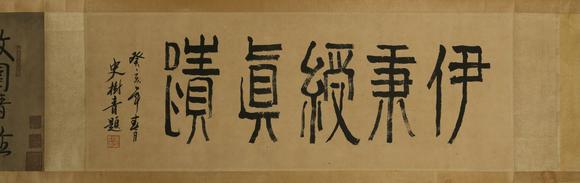 伊秉綬眞蹟
癸亥年春
史樹青題